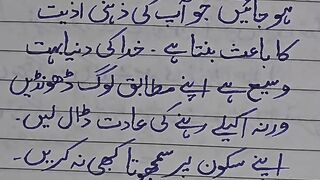 ہو جائیں جو آپ کی ذہنی اذیت
کا باعث بنتا ہے ۔ خدا کی دنیا بہت
وسیع ہے اپنے مطابق لوگ ڈھونڈیں
ورنہ اکیلے رہنے کی عادت ڈال لیں ۔
اپنے سکون پر سمجھوتا کبھی نہ کریں ۔